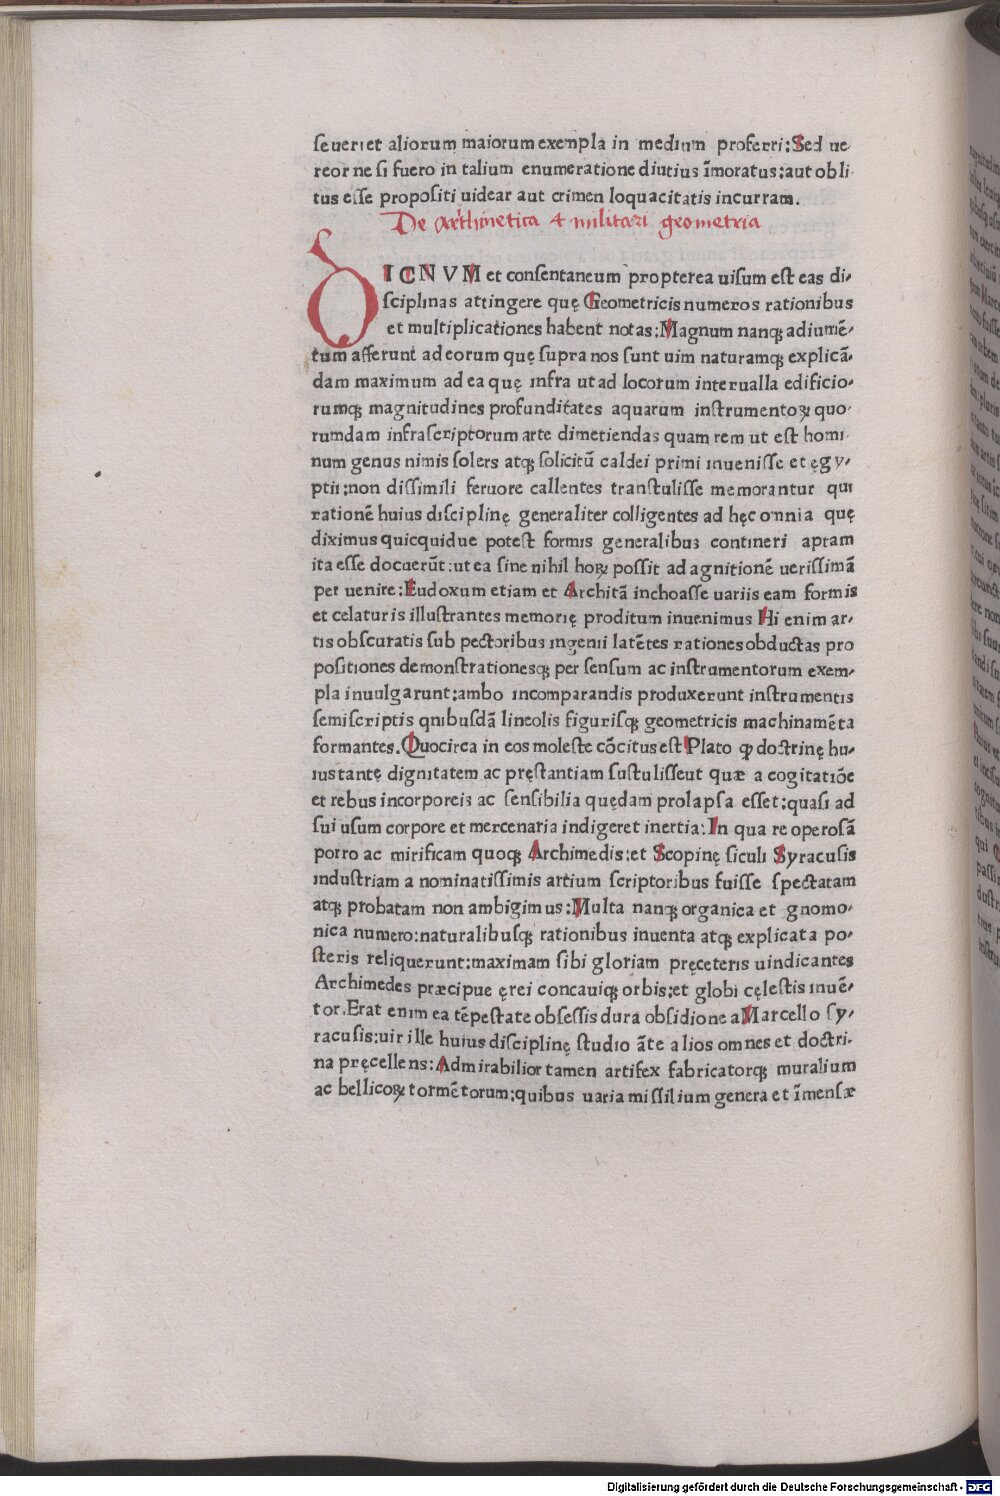 ſeueriet aliorum maiorum exempla in medium proferri: Sed ue
reor ne ſi fuero in talium enumeratione diutius īmoratus: aut obli
tus eſſe propoſiti uidear aut crimen loquacitatis incurram.
De arithmetica & militari geometria
DICNVM et conſentaneum propterea uiſum eſt eas di-
ſciplinas attingere quę Geometricis numeros rationibus
et multiplicationes habent notas: Magnum nanqꝫ adiumē-
tum afferunt ad eorum quę ſupra nos ſunt uim naturamqꝫ explicā-
dam maximum ad ea quę infra ut ad locorum interualla edificio-
rumqꝫ magnitudines profunditates aquarum inſtrumentoꝝ quo-
rumdam infraſcriptorum arte dimetiendas quam rem ut eſt homi-
num genus nimis ſolers atqꝫ ſolicitū caldei primi inueniſſe et ęgy-
ptii: non diſſimili feruore callentes tranſtuliſſe memorantur qui
rationē huius diſciplinę generaliter colligentes ad hęc omnia quę
diximus quicquidue poteſt formis generalibus contineri aptam
ita eſſe docuerūt: ut ea ſine nihil hoꝝ poſſit ad agnitionē ueriſſimā
per uenire: Eudoxum etiam et Architā inchoaſſe uariis eam formis
et celaturis illuſtrantes memorię proditum inuenimus Hi enim ar-
tis obſcuratis ſub pectoribus ingenii latētes rationes obductas pro
poſitiones demonſtrationesqꝫ per ſenſum ac inſtrumentorum exem-
pla inuulgarunt: ambo incomparandis produxerunt inſtrumentis
ſemiſcriptis qnibuſdā lineolis figuriſqꝫ geometricis machinamēta
formantes. Quocirca in eos moleſte cōcitus eſt Plato ꝙ doctrinę hu-
ius tantę dignitatem ac pręſtantiam ſuſtuliſſeut quæ a eogitatiōe
et rebus incorporeis ac ſenſibilia quędam prolapſa eſſet: quaſi ad
ſui uſum corpore et mercenaria indigeret inertia: In qua re operoſā
porro ac mirificam quoqꝫ Archimedis: et Scopinę ſiculi Syracuſis
induſtriam a nominatiſſimis artium ſcriptoribus fuiſſe ſpectatam
atqꝫ probatam non ambigimus: Multa nanqꝫ organica et gnomo-
nica numero: naturalibuſqꝫ rationibus inuenta atqꝫ explicata po-
ſteris reliquerunt: maximam ſibi gloriam pręceteris uindicantes
Archimedes præcipue ęrei concauiqꝫ orbis: et globi cęleſtis inuē-
tor. Erat enim ea tēpeſtate obſeſſis dura obſidione a Marcello ſy-
racuſis: uir ille huius diſciplinę ſtudio āte alios omnes et doctri-
na pręcellens: Admirabilior tamen artifex fabricatorqꝫ muralium
ac bellicoꝝ tormētorum: quibus uaria miſſilium genera et īmenſæ
Digitalisierung gefördert durch die Deutsche Forschungsgemeinschaft - DFG